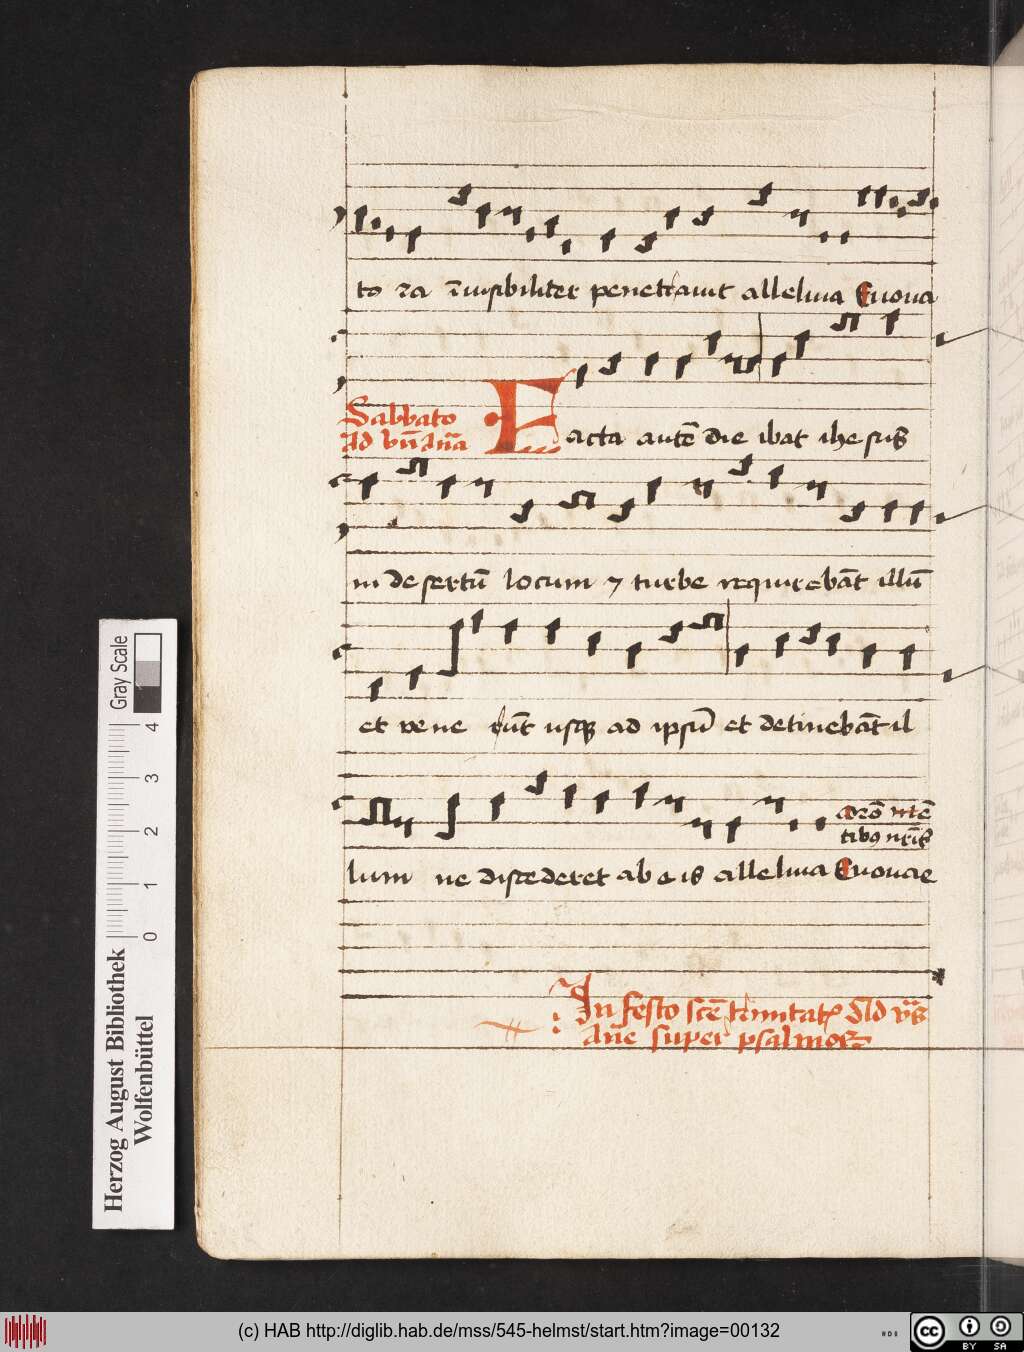 to ra īuisibiliter penetrauit alleluia Euoua
Sabbato
Ad bn̄ Anā
Facta autē die ibat ihesus
in desertū locum ⁊ turbe requirebāt illū
et vene rūt usqꝫ ad ipsū et detinebāt il
lum ne discederet ab eis alleluia Euouae
In festo scē trinitatꝭ Ad vꝰs
Añe super psalmos
Gray Scale
4
3
2
1
0
Herzog August Bibliothek
Wolfenbüttel
(c) HAB http://diglib.hab.de/mss/545-helmst/start.htm?image=00132
cc
BY SA